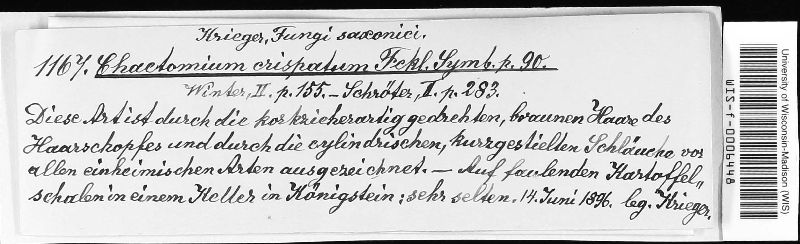 Krieger, Fungi saxonici.
1167. Chaetomium crispatum Fckl. Symb. p. 90.
Winter, II. p. 155. – Schröter, II. p. 283.
Diese Art ist durch die korkzieherartig gedrehten, braunen Haare des
Haarschopfes und durch die cylindrischen, kurzgestielten Schläuche vor
allen einheimischen Arten ausgezeichnet. — Auf faulenden Kartoffel„
schalen in einem Keller in Königstein; sehr selten. 14. Juni 1896. leg. Krieger.
University of Wisconsin-Madison (WIS)
WIS-f-0006448